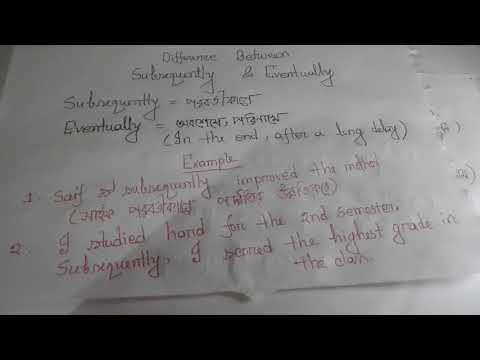 Difference Between
Subsequently & Eventually
Subsequently = পরবর্তীকালে
Eventually = অবশেষে, পরিণামে
(In the end, after a long delay)
Example
1. Saif subsequently improved the
(সাইফ পরবর্তীকালে
2. I studied hard for the 2nd semester.
Subsequently, I scored the highest grade in
the class.